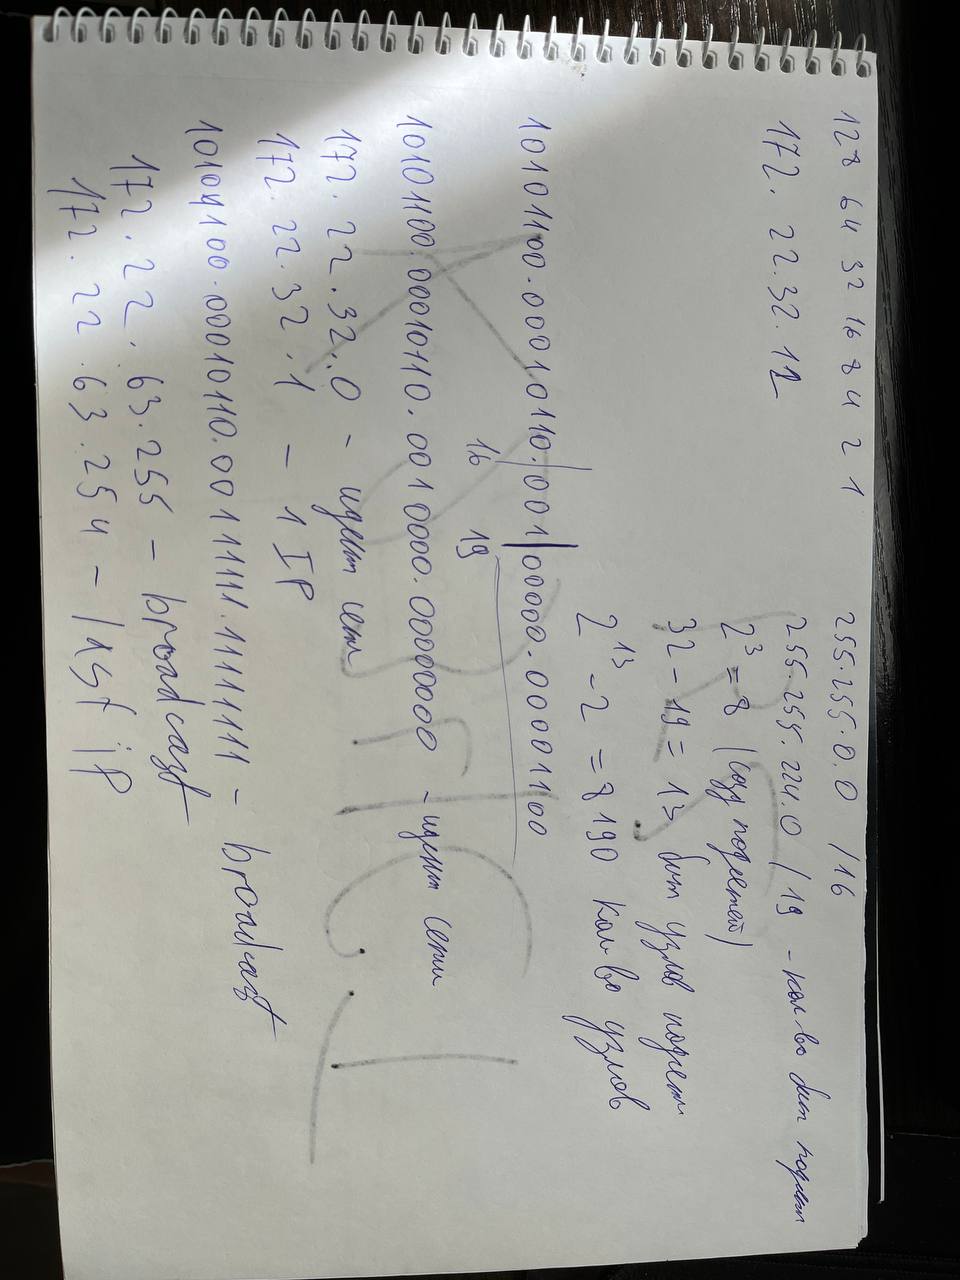 128 64 32 16 8 4 2 1
255.255.0.0 /16
172. 22.32.12
255.255.224.0 /19 - кол-во бит подсети
2³ = 8 (созд подсетей)
32 - 19 = 13 бит узлов подсети
2¹³ - 2 = 8190 кол-во узлов
10101100.00010110.00100000.00001100
16 19
10101100.00010110.0010000.00000000 - идент сети
172.22.32.0 - идент сети
172.22.32.1 - 1 IP
10101100.00010110.00111111.11111111 - broadcast
172.22.63.255 - broadcast
172.22.63.254 - last ip